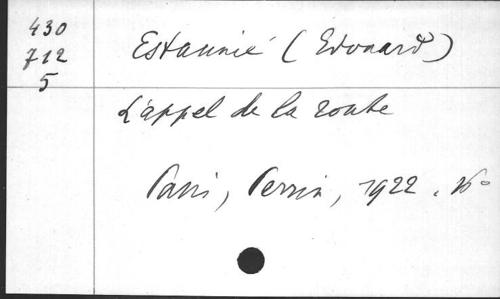 430
712
5
Estaunié (Edouard)
L'appel de la route
Paris, Perrin, 1922. 16°